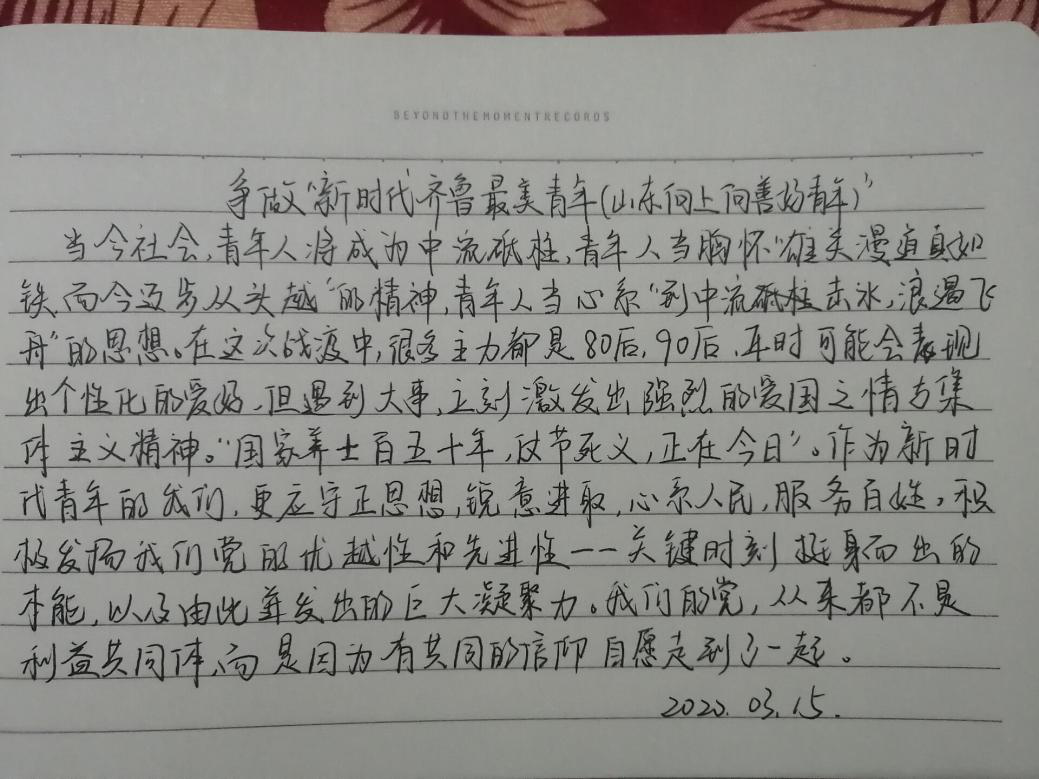 BEYONDTHEMOMENTRECORDS
争做“新时代齐鲁最美青年(山东向上向善好青年)”
当今社会,青年人将成为中流砥柱,青年人当胸怀“雄关漫道真如
铁,而今迈步从头越”的精神,青年人当心系“到中流砥柱击水,浪遏飞
舟”的思想。在这次战疫中,很多主力都是80后,90后,平时可能会表现
出个性化的爱好,但遇到大事,立刻激发出强烈的爱国之情与集
体主义精神。“国家养士百五十年,仗节死义,正在今日”。作为新时
代青年的我们,更应守正思想,锐意进取,心系人民,服务百姓,积
极发扬我们党的优越性和先进性——关键时刻挺身而出的
本能,以及由此迸发出的巨大凝聚力。我们的党,从来都不是
利益共同体,而是因为有共同的信仰自愿走到了一起。
2020.03.15.